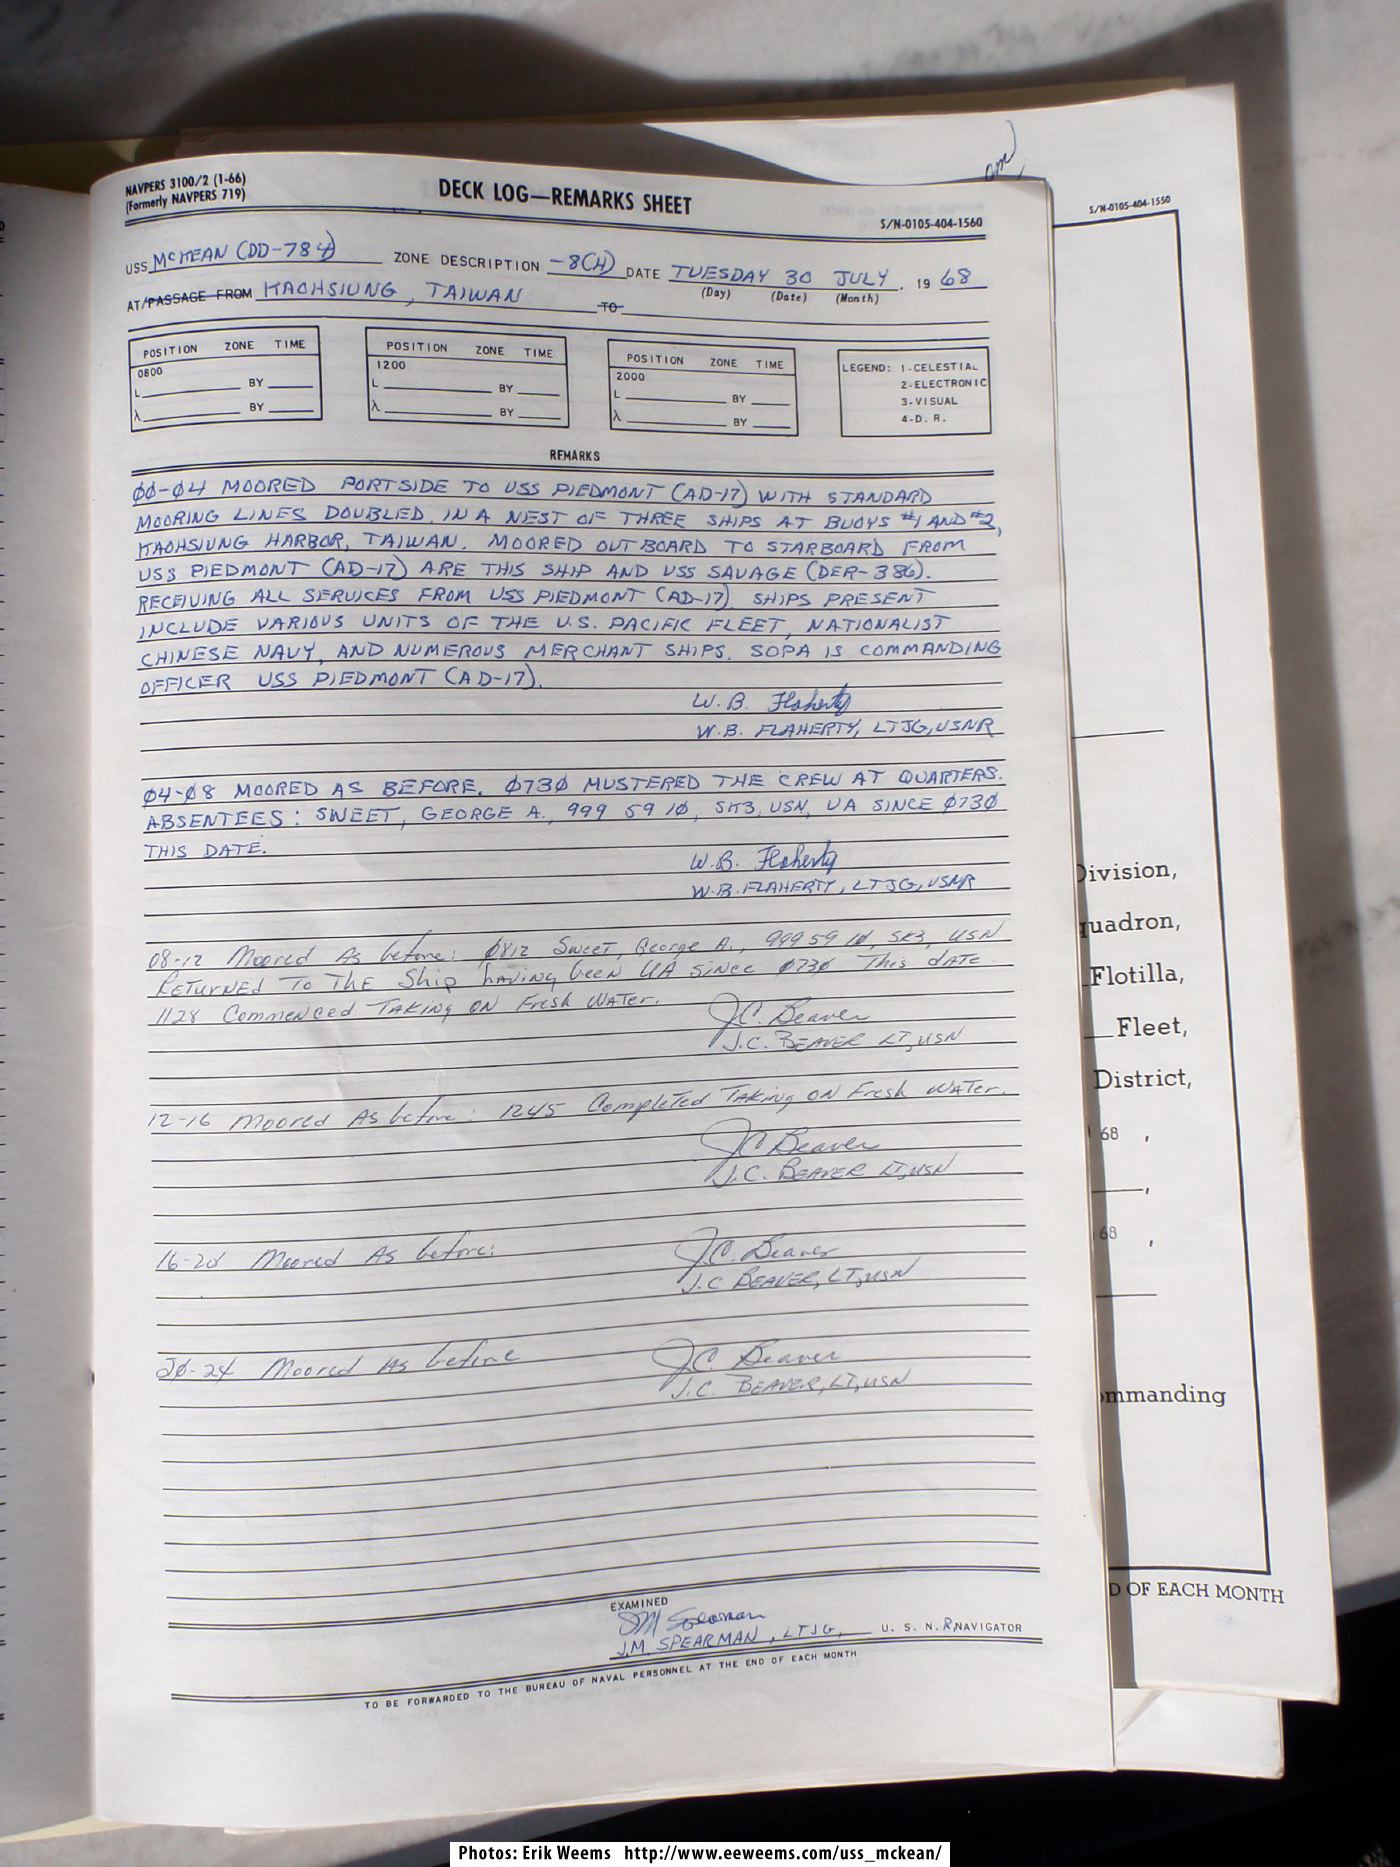 NAVPERS 3100/2 (1-66)
(Formerly NAVPERS 719)
DECK LOG—REMARKS SHEET
S/N-0105-404-1560
USS McKEAN (DD-784) ZONE DESCRIPTION -8(H) DATE TUESDAY 30 JULY, 19 68
(Day) (Date) (Month)
AT/PASSAGE FROM KAOHSIUNG, TAIWAN TO
POSITION ZONE TIME
0800
L BY
λ BY
POSITION ZONE TIME
1200
L BY
λ BY
POSITION ZONE TIME
2000
L BY
λ BY
LEGEND: 1-CELESTIAL
2-ELECTRONIC
3-VISUAL
4-D. R.
REMARKS
00-04 MOORED PORTSIDE TO USS PIEDMONT (AD-17) WITH STANDARD
MOORING LINES DOUBLED, IN A NEST OF THREE SHIPS AT BUOYS #1 AND #2,
KAOHSIUNG HARBOR, TAIWAN. MOORED OUTBOARD TO STARBOARD FROM
USS PIEDMONT (AD-17) ARE THIS SHIP AND USS SAVAGE (DER-386).
RECEIVING ALL SERVICES FROM USS PIEDMONT (AD-17). SHIPS PRESENT
INCLUDE VARIOUS UNITS OF THE U.S. PACIFIC FLEET, NATIONALIST
CHINESE NAVY, AND NUMEROUS MERCHANT SHIPS. SOPA IS COMMANDING
OFFICER USS PIEDMONT (AD-17).
W. B. Flaherty
W.B. FLAHERTY, LTJG, USNR
04-08 MOORED AS BEFORE. 0730 MUSTERED THE CREW AT QUARTERS.
ABSENTEES: SWEET, GEORGE A., 999 59 10, SK3, USN, UA SINCE 0730
THIS DATE.
W. B. Flaherty
W.B. FLAHERTY, LTJG, USNR
08-12 Moored As before: 0812 Sweet, George A., 999 59 10, SK3, USN
Returned To The Ship having been UA since 0730 This date.
1128 Commenced Taking on Fresh Water.
J.C. Beaver
J.C. BEAVER LT, USN
12-16 Moored As before: 1245 Completed Taking on Fresh Water.
JC Beaver
J.C. BEAVER LT, USN
16-20 Moored As before:
J.C. Beaver
J.C BEAVER, LT, USN
20-24 Moored As before
J.C. Beaver
J.C. BEAVER, LT, USN
EXAMINED
JM Spearman
J.M. SPEARMAN, LTJG, U. S. N. R, NAVIGATOR
TO BE FORWARDED TO THE BUREAU OF NAVAL PERSONNEL AT THE END OF EACH MONTH
S/N-0105-404-1550
Division,
Flotilla,
Fleet,
District,
68 ,
,
68 ,
OF EACH MONTH
Photos: Erik Weems http://www.eeweems.com/uss_mckean/